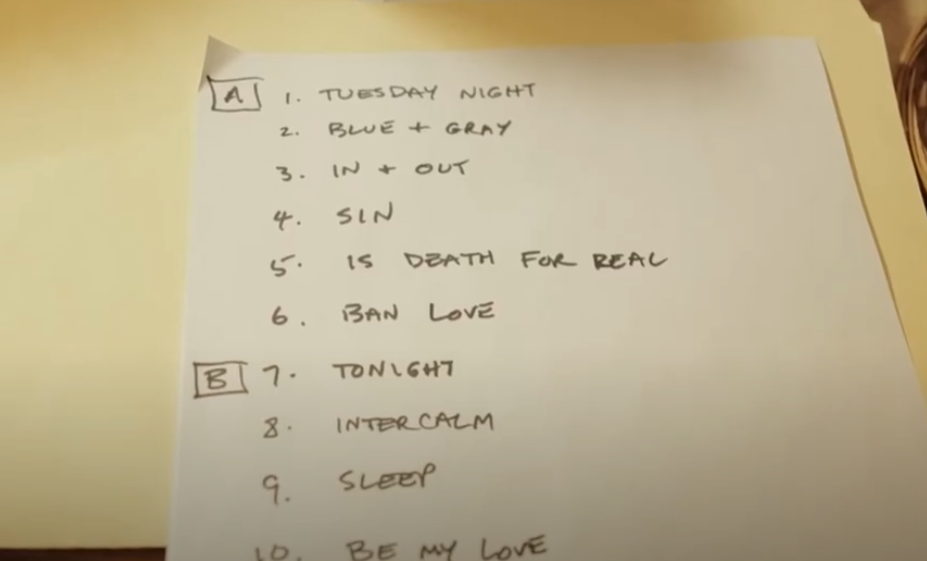 A 1. TUESDAY NIGHT
2. BLUE + GRAY
3. IN + OUT
4. SIN
5. IS DEATH FOR REAL
6. BAN LOVE
B 7. TONIGHT
8. INTERCALM
9. SLEEP
10. BE MY LOVE